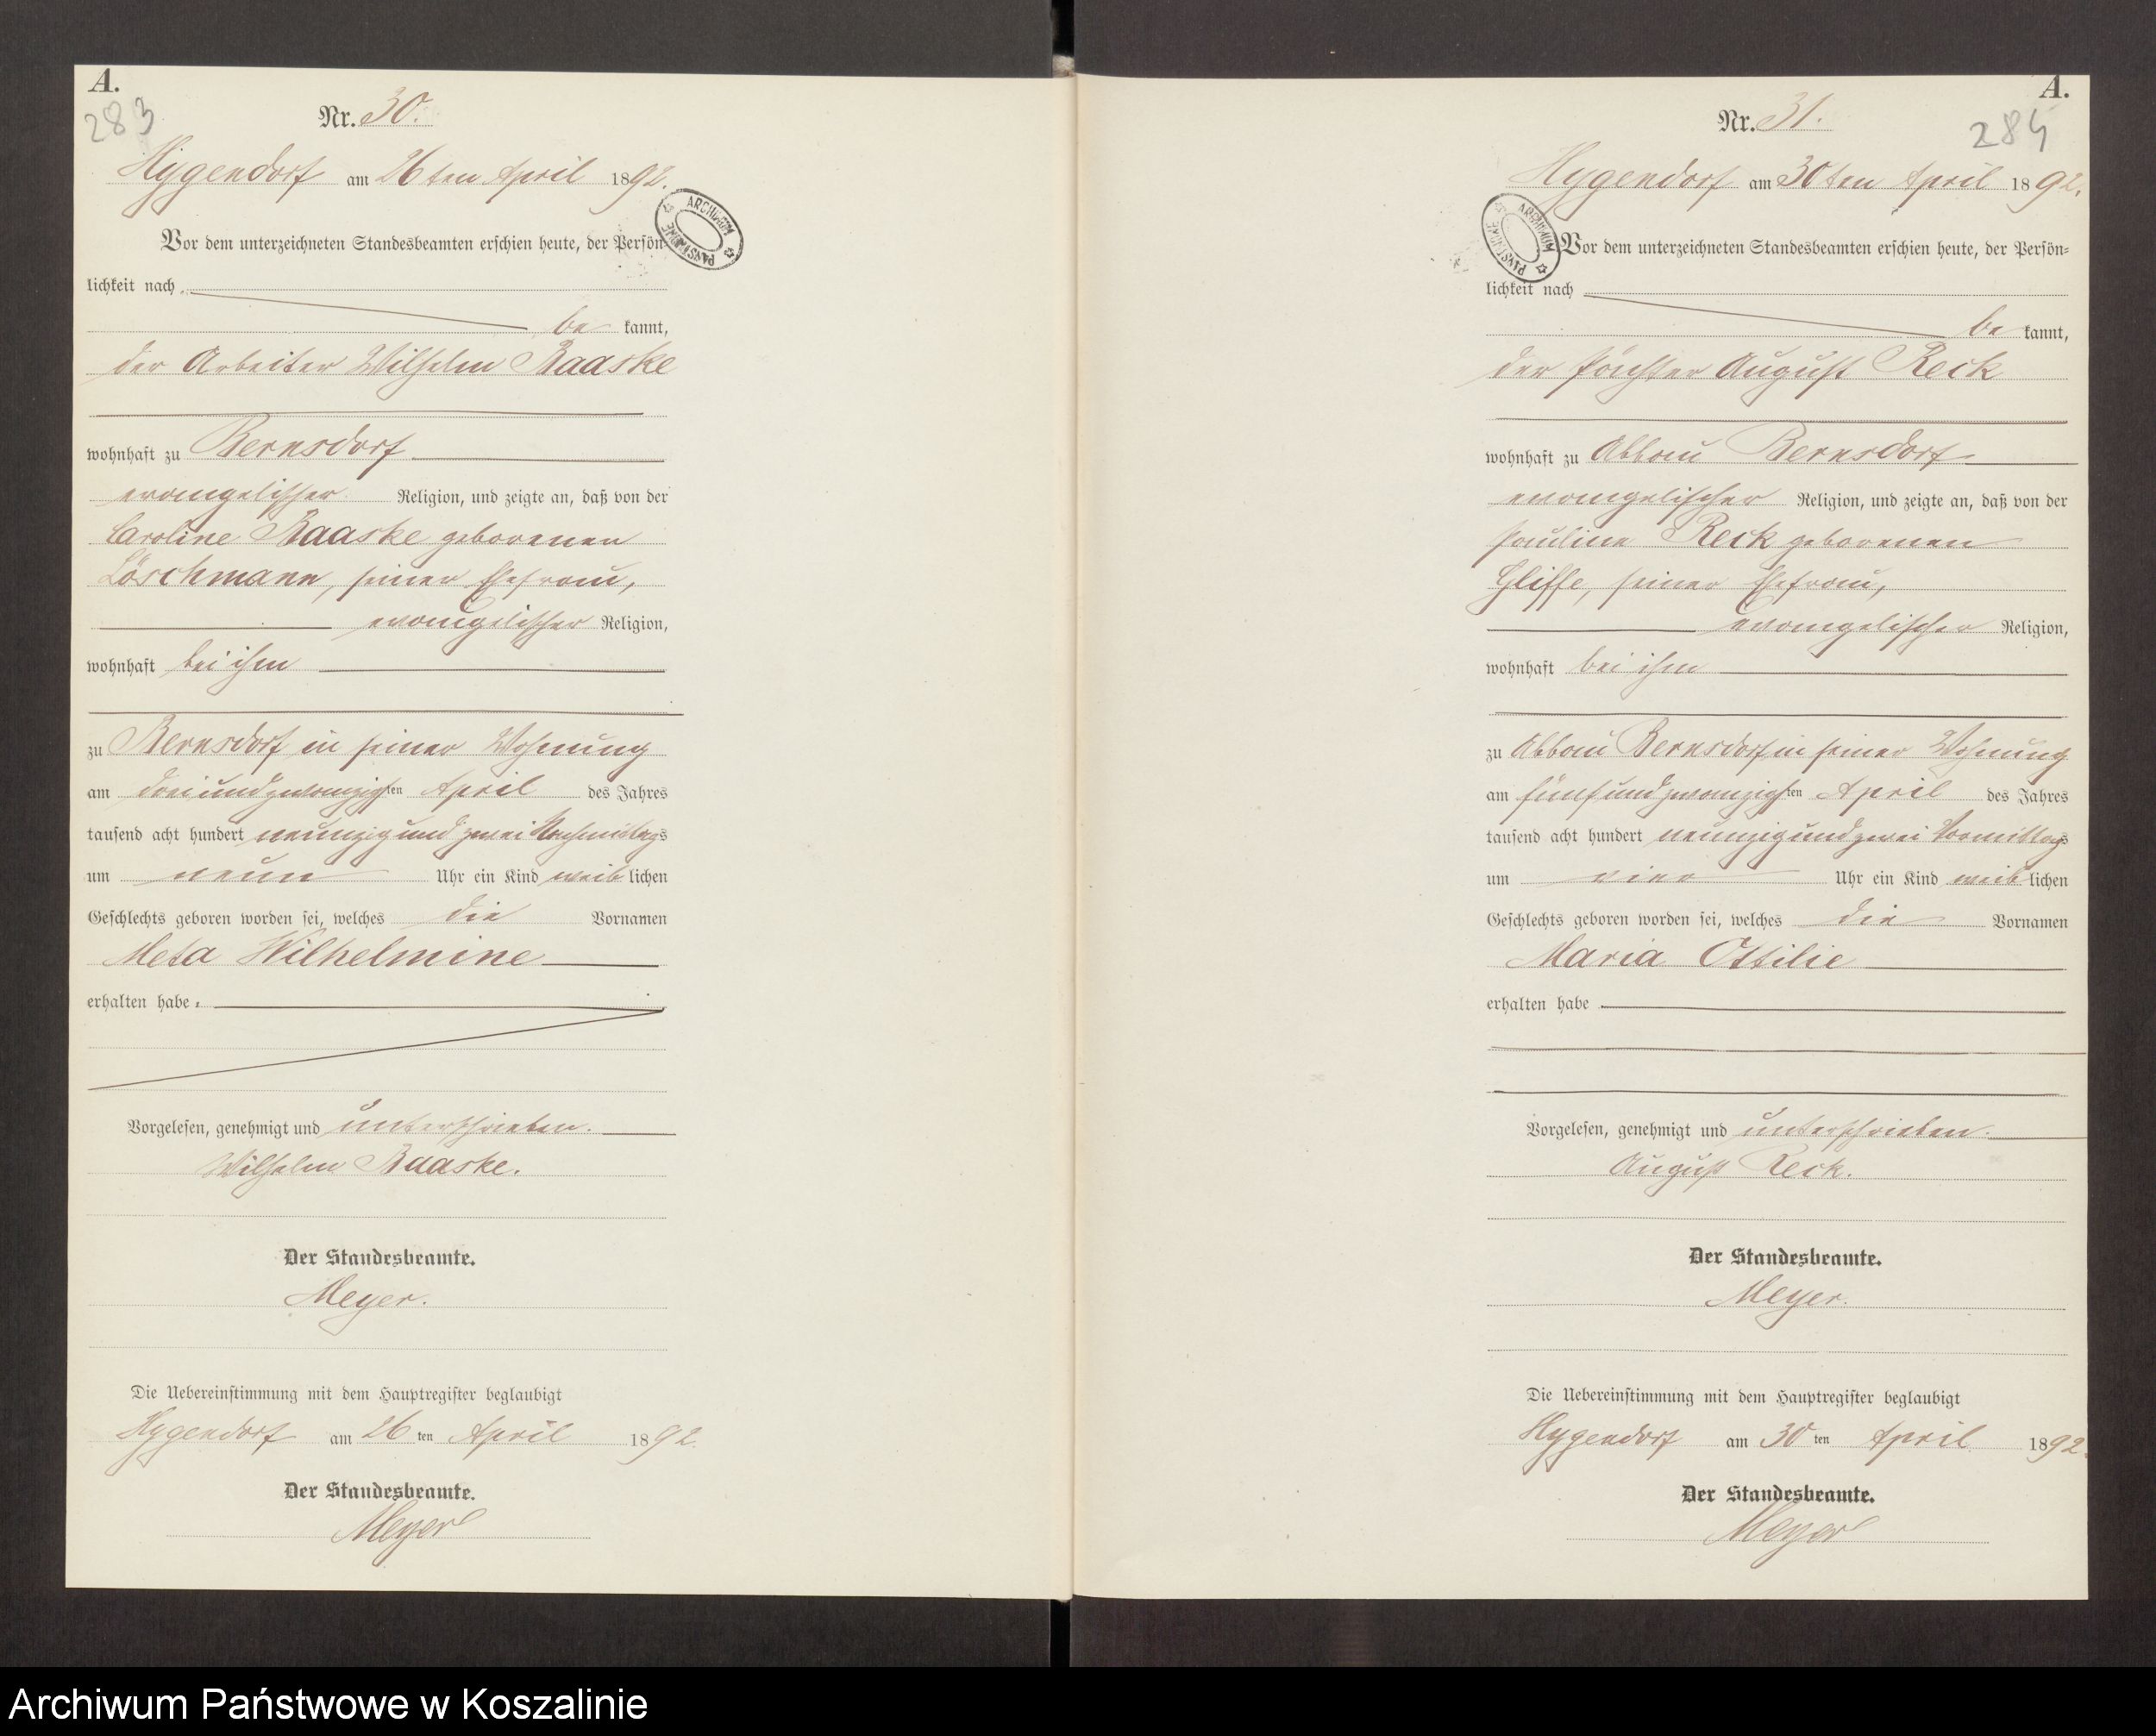 A.
283
Nr. 30.
Hygendorf am 26ten April 1892.
ARCHIWUM PAŃSTWOWE
Vor dem unterzeichneten Standesbeamten erschien heute, der Persön-
lichkeit nach
be kannt,
der Arbeiter Wilhelm Raaske
wohnhaft zu Bernsdorf
evangelischer Religion, und zeigte an, daß von der
Caroline Raaske geborenen
Löschmann, seiner Ehefrau,
evangelischer Religion,
wohnhaft bei ihm
zu Bernsdorf in seiner Wohnung
am dreiundzwanzigsten April des Jahres
tausend acht hundert neunzig und zwei Nachmittags
um neun Uhr ein Kind weiblichen
Geschlechts geboren worden sei, welches die Vornamen
Meta Wilhelmine
erhalten habe.
Vorgelesen, genehmigt und unterschrieben.
Wilhelm Raaske.
Der Standesbeamte.
Meyer.
Die Uebereinstimmung mit dem Hauptregister beglaubigt
Hygendorf am 26ten April 1892.
Der Standesbeamte.
Meyer
A.
284
Nr. 31.
Hygendorf am 30ten April 1892.
ARCHIWUM PAŃSTWOWE
Vor dem unterzeichneten Standesbeamten erschien heute, der Persön-
lichkeit nach
be kannt,
der Pächter August Reck
wohnhaft zu Abbau Bernsdorf
evangelischer Religion, und zeigte an, daß von der
Pauline Reck geborenen
Gliffe, seiner Ehefrau,
evangelischer Religion,
wohnhaft bei ihm
zu Abbau Bernsdorf in seiner Wohnung
am fünfundzwanzigsten April des Jahres
tausend acht hundert neunzig und zwei Vormittags
um vier Uhr ein Kind weiblichen
Geschlechts geboren worden sei, welches die Vornamen
Maria Ottilie
erhalten habe
Vorgelesen, genehmigt und unterschrieben.
August Reck.
Der Standesbeamte.
Meyer.
Die Uebereinstimmung mit dem Hauptregister beglaubigt
Hygendorf am 30ten April 1892.
Der Standesbeamte.
Meyer
Archiwum Państwowe w Koszalinie